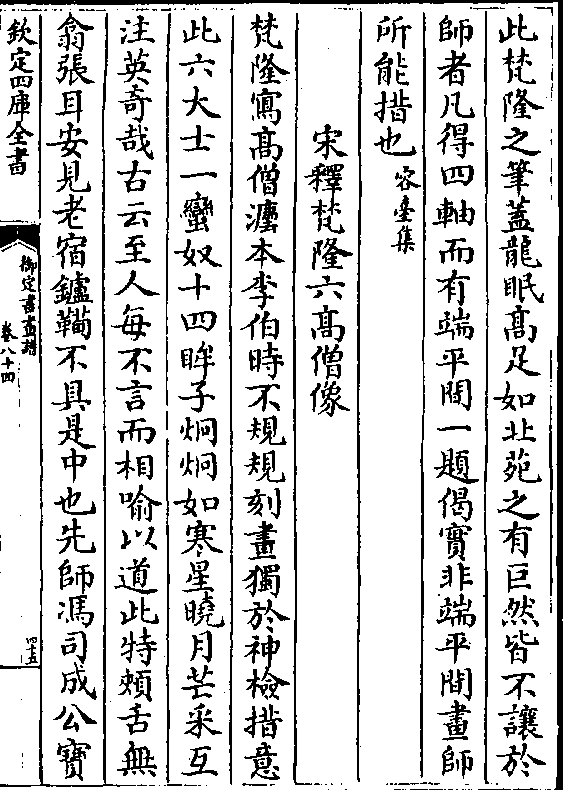 此梵隆之筆葢龍眠髙足如北苑之有巨然皆不讓於
師者凡得四軸而有端平間一題偈實非端平間畫師
所能措也容臺集
宋釋梵隆六髙僧像
梵隆寫髙僧瀍本李伯時不規規刻畫獨於神檢措意
此六大士一蠻奴十四眸子炯炯如寒星曉月芒采互
注英奇哉古云至人每不言而相喻以道此特頰舌無
翕張耳安見老宿鑪鞴不具是中也先師馮司成公寶
欽定四庫全書
御定書畫譜
卷八十四
四十五